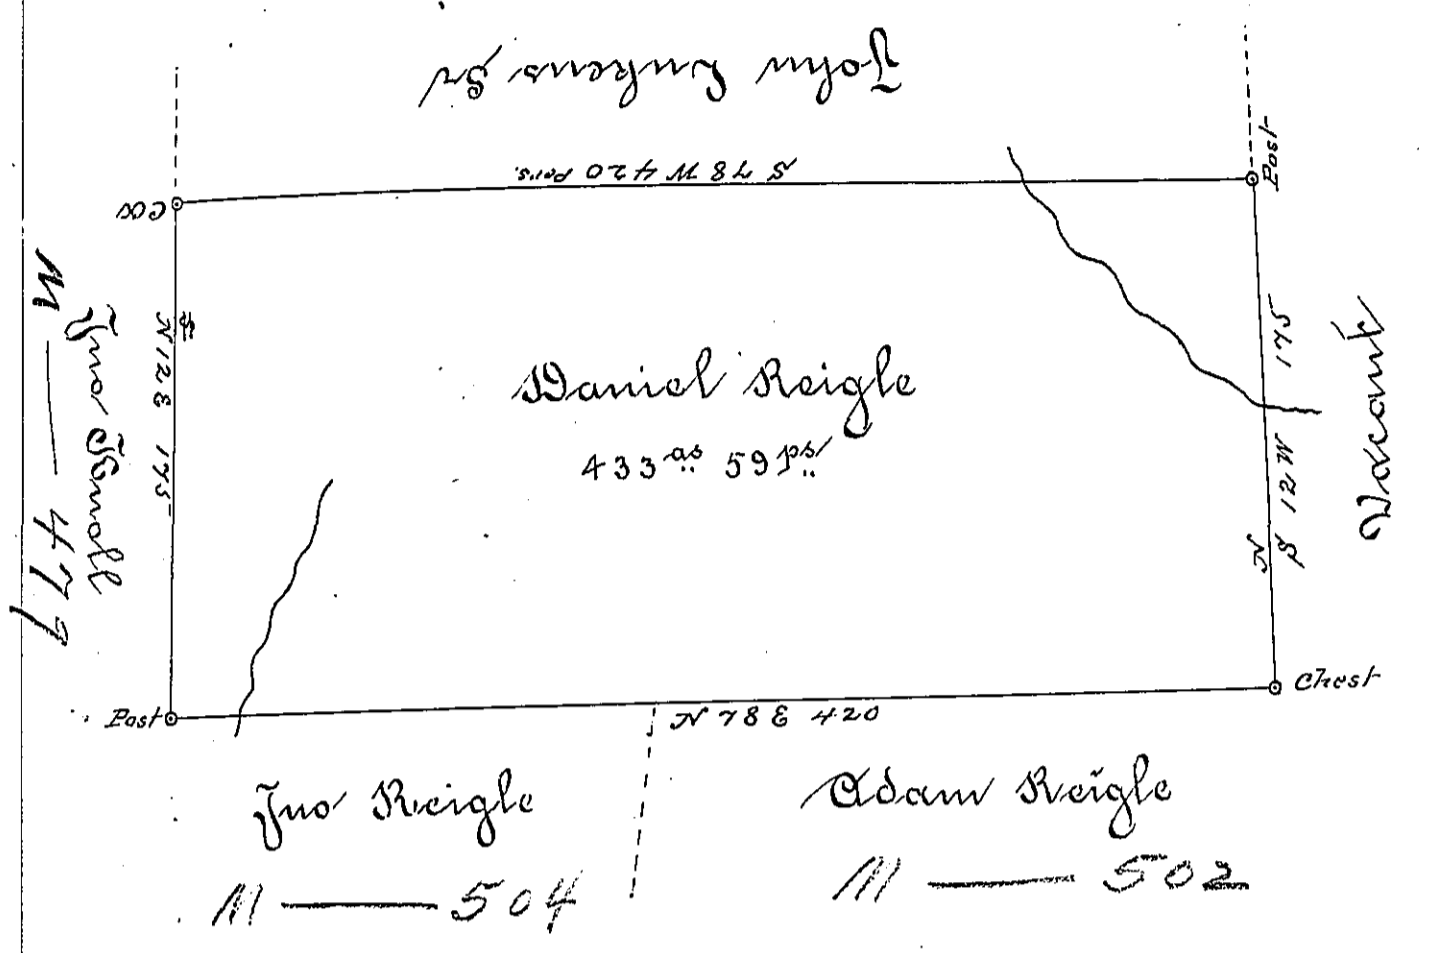 John Lukens Sr
S 78 W 420 Pers.
Post
Cos
N 12 E 175
Jno Kmall
M — 477
Daniel Reigle
433 as 59 ps
S 12 W 175
N
Vacant
Chest
Post
N 78 E 420
Jno Reigle
Adam Reigle
M — 504
M — 502